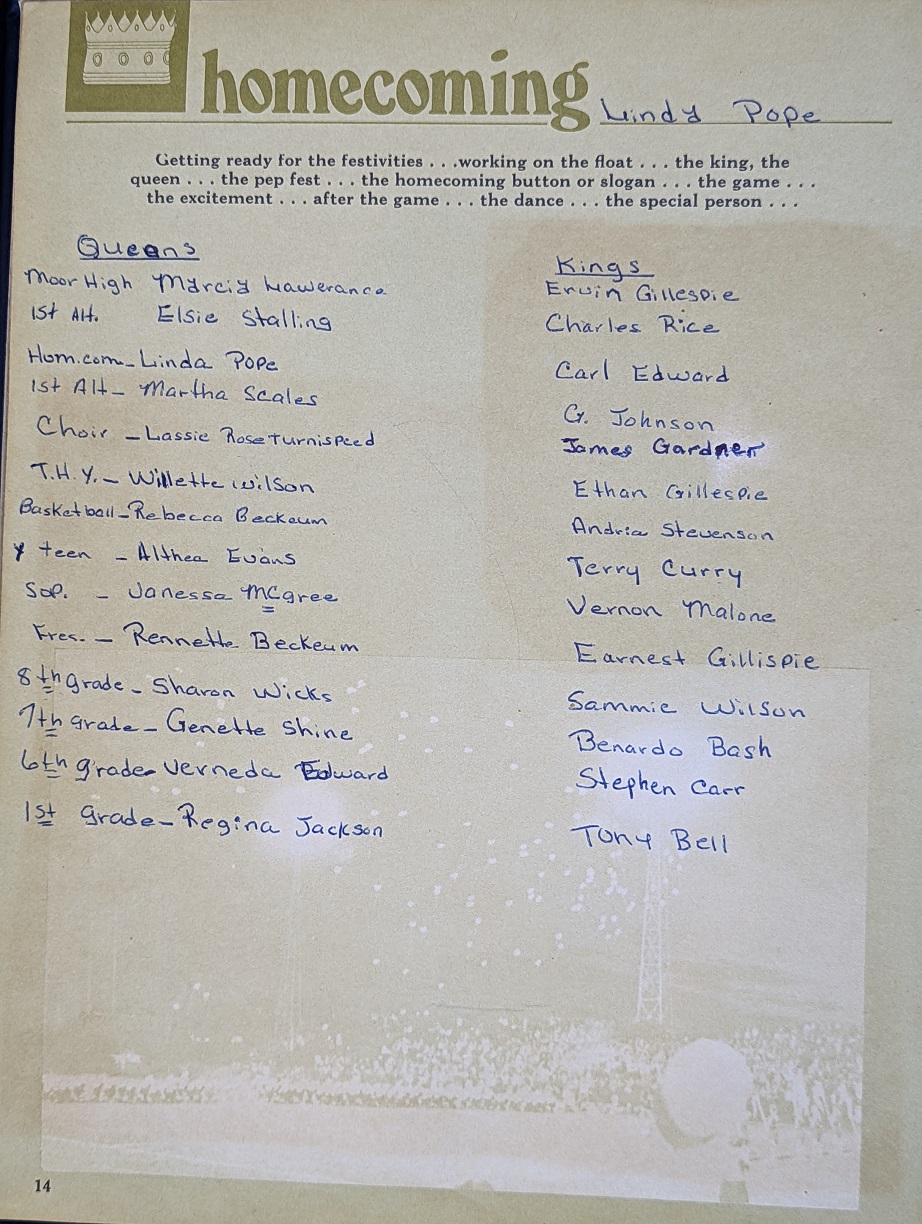 homecoming Lindy Pope
Getting ready for the festivities . . .working on the float . . . the king, the
queen . . . the pep fest . . . the homecoming button or slogan . . . the game . . .
the excitement . . . after the game . . . the dance . . . the special person . . .
Queens
Moor High Marcia Lawerance
1st Alt. Elsie Stalling
Hom.com- Linda Pope
1st Alt- Martha Scales
Choir - Lassie Rose turnispeed
T.H.Y.- Willette wilson
Basketball-Rebecca Beckeum
Y teen - Althea Evans
Sop. - Janessa McGree
Fres. - Rennette Beckeum
8th grade- Sharon Wicks
7th grade- Genette Shine
6th grade- Verneda Edward
1st grade- Regina Jackson
Kings
Ervin Gillespie
Charles Rice
Carl Edward
G. Johnson
James Gardner
Ethan Gillespie
Andria Stevenson
Terry Curry
Vernon Malone
Earnest Gillispie
Sammie Wilson
Benardo Bash
Stephen Carr
Tony Bell
14